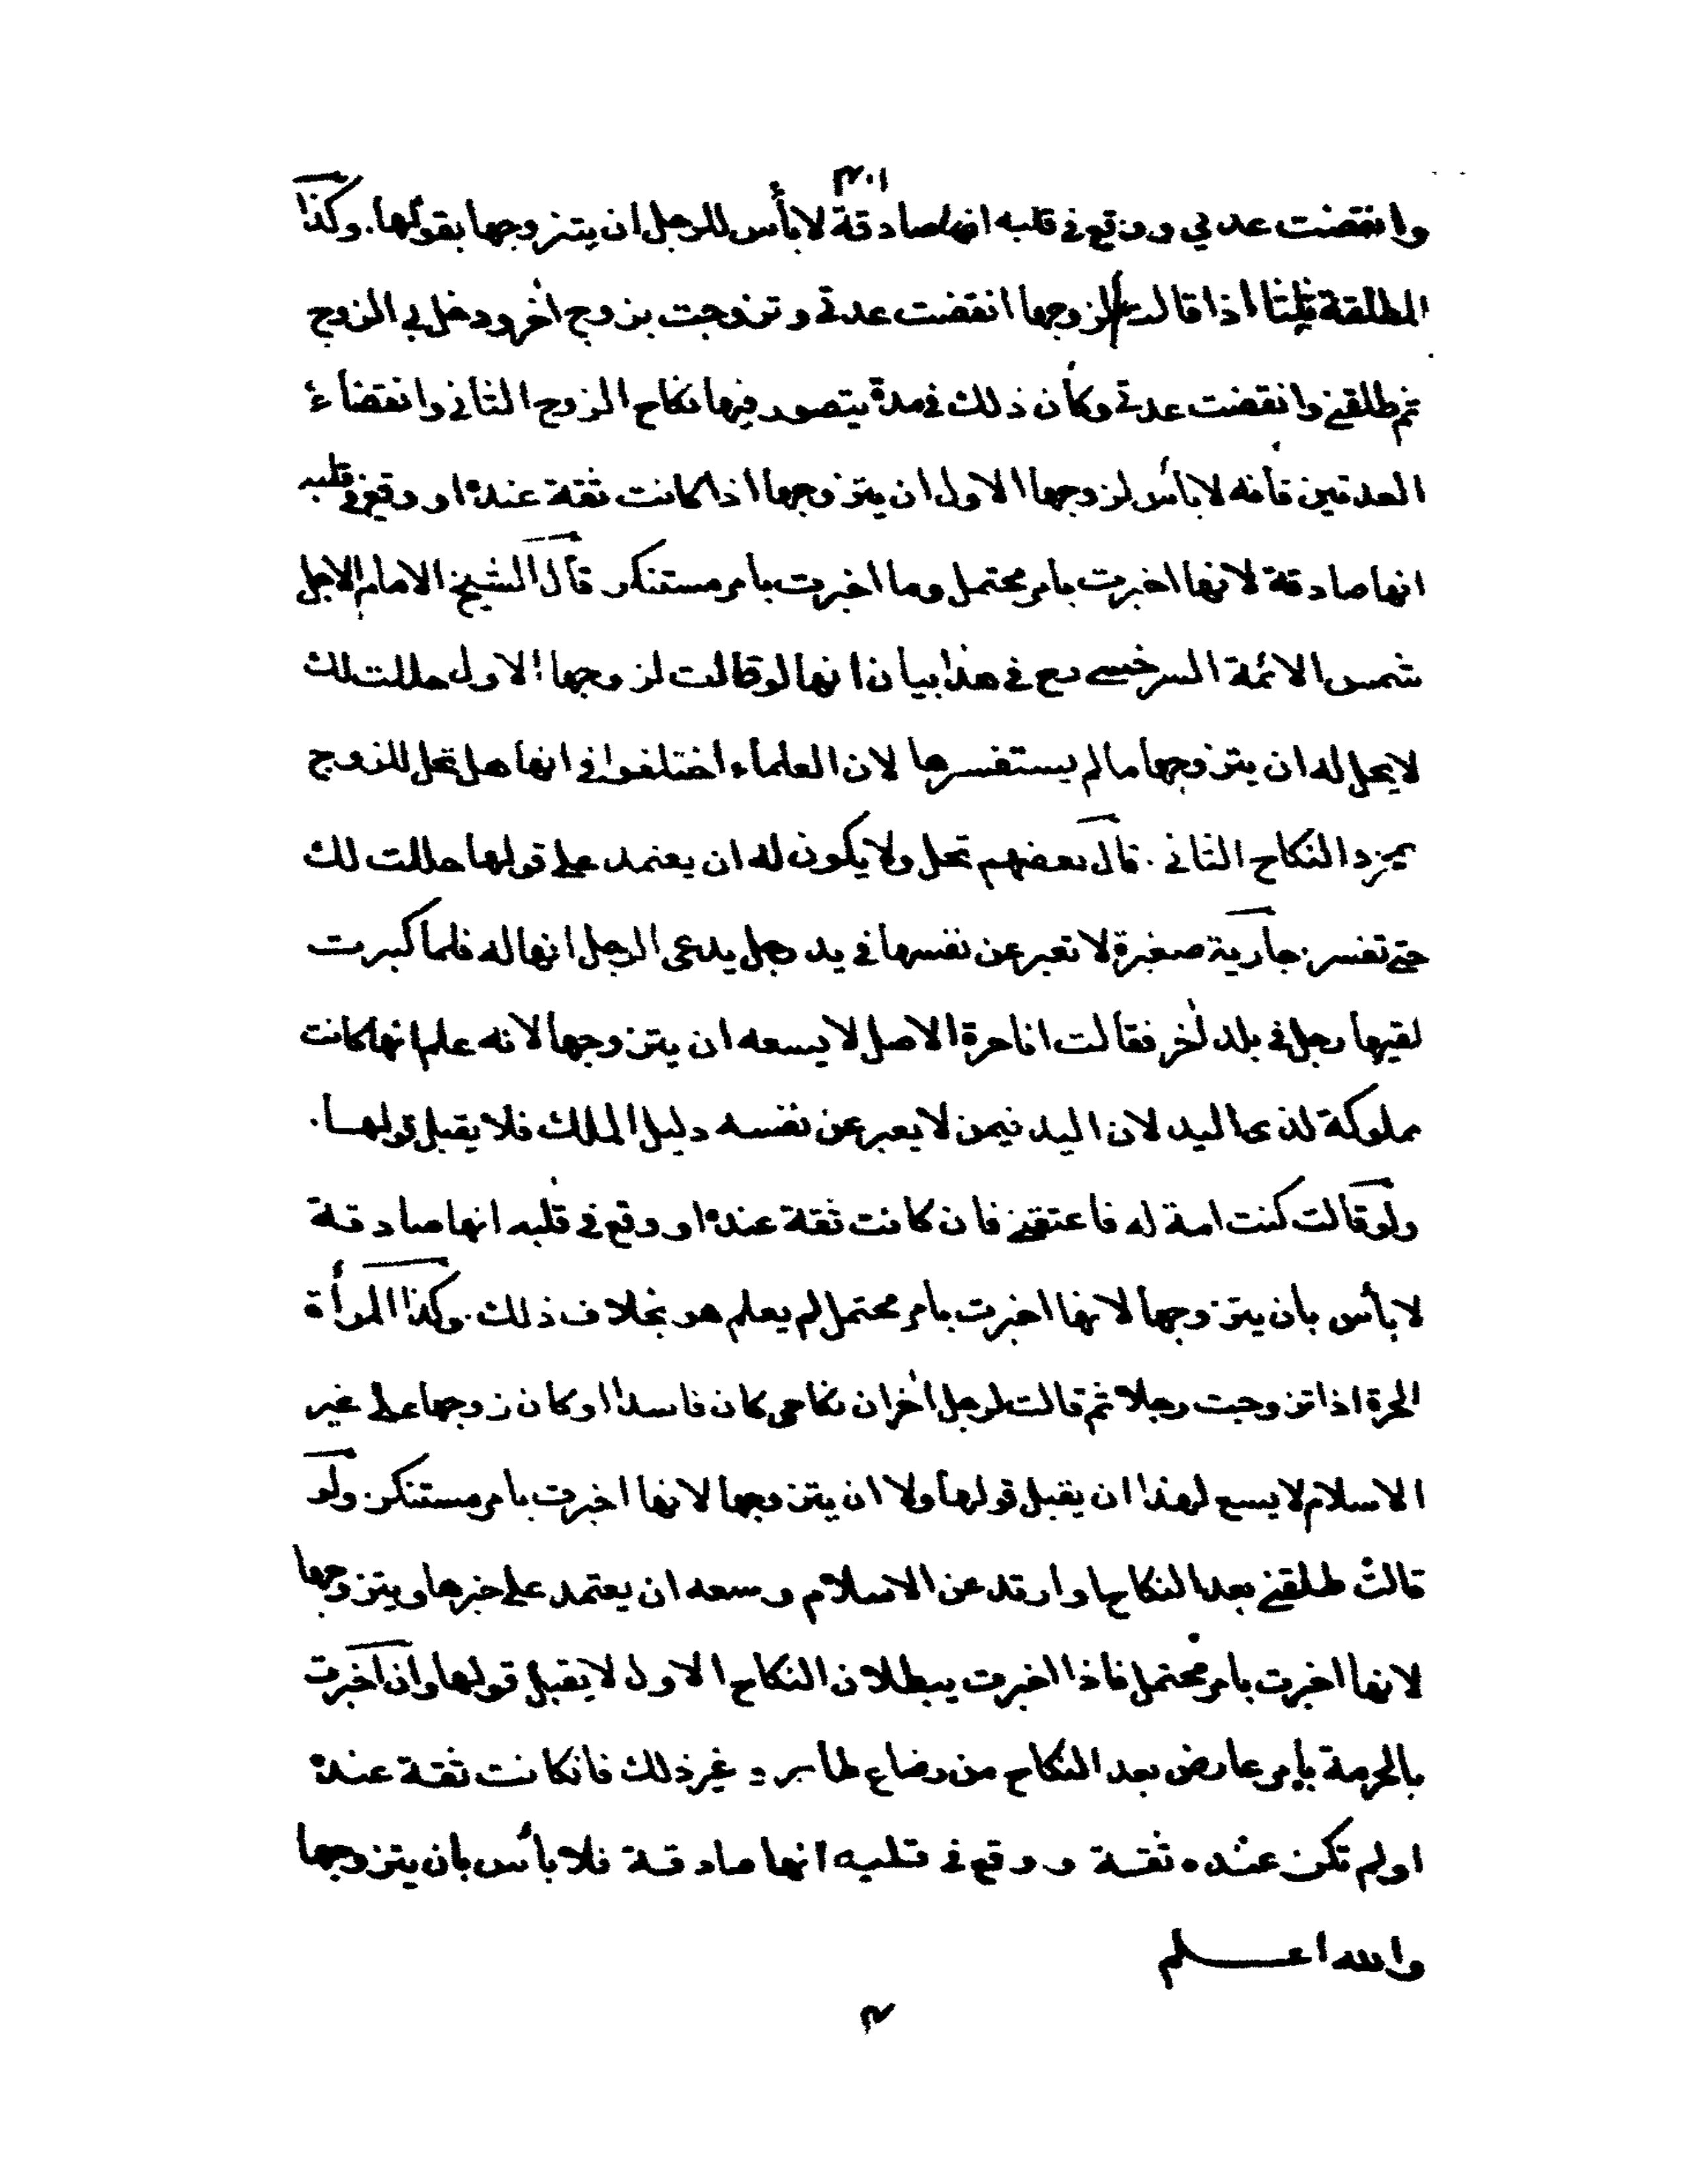 ٢٠١
وانقضت عدتي ووقع في قلبه انها صادقة لا بأس للرجل ان يتزوجها بقولها. وكذا
المطلقة ثلثا اذا قالت لزوجها انقضت عدتي و تزوجت بزوج اٰخر ودخل بي الزوج
ثم طلقني وانقضت عدتي وكان ذلك في مدة يتصور فيها نكاح الزوج الثاني وانقضاء
العدتين فأنه لا بأس لزوجها الاول ان يتزوجها اذا كانت ثقة عنده او وقع في قلبه
انها صادقة لانها اخبرت بامر محتمل وما اخبرت بامر مستنكر قال الشيخ الامام الاجل
شمس الائمة السرخسي رح في هذا بيان انها لو قالت لزوجها الاول حللت لك
لا يحل له ان يتزوجها ما لم يستفسرها لان العلماء اختلفوا في انها هل تحل للزوج
بمجرد النكاح الثاني . قال بعضهم تحل ولا يكون له ان يعتمد على قولها حللت لك
حتى تفسر. جارية صغيرة لا تعبر عن نفسها في يد رجل يدعى الرجل انها له فلما كبرت
لقيها رجل في بلد اٰخر فقالت انا حرة الاصل لا يسعه ان يتزوجها لانه علم انها كانت
مملوكة لذى اليد لان اليد فيمن لا يعبر عن نفسه دليل الملك فلا يقبل قولها.
ولو قالت كنت امة له فاعتقني فان كانت ثقة عنده او وقع في قلبه انها صادقة
لا بأس بأن يتزوجها لانها اخبرت بامر محتمل لم يعلم هو بخلاف ذلك. وكذا المرأة
الحرة اذا تزوجت رجلا ثم قالت لرجل اٰخر ان نكاحي كان فاسدا او كان زوجها على غير
الاسلام لا يسع لهذا ان يقبل قولها ولا ان يتزوجها لانها اخبرت بامر مستنكر. ولو
قالت طلقني بعد النكاح او ارتد عن الاسلام وسعه ان يعتمد على خبرها ويتزوجها
لانها اخبرت بامر محتمل فاذا اخبرت ببطلان النكاح الاول لا يقبل قولها وان اخبرت
بالحرمة بامر عارض بعد النكاح من رضاع طار و غير ذلك فانكانت ثقة عنده
او لم تكن عنده ثقة و وقع في قلبه انها صادقة فلا بأس بان يتزوجها
والله اعلم